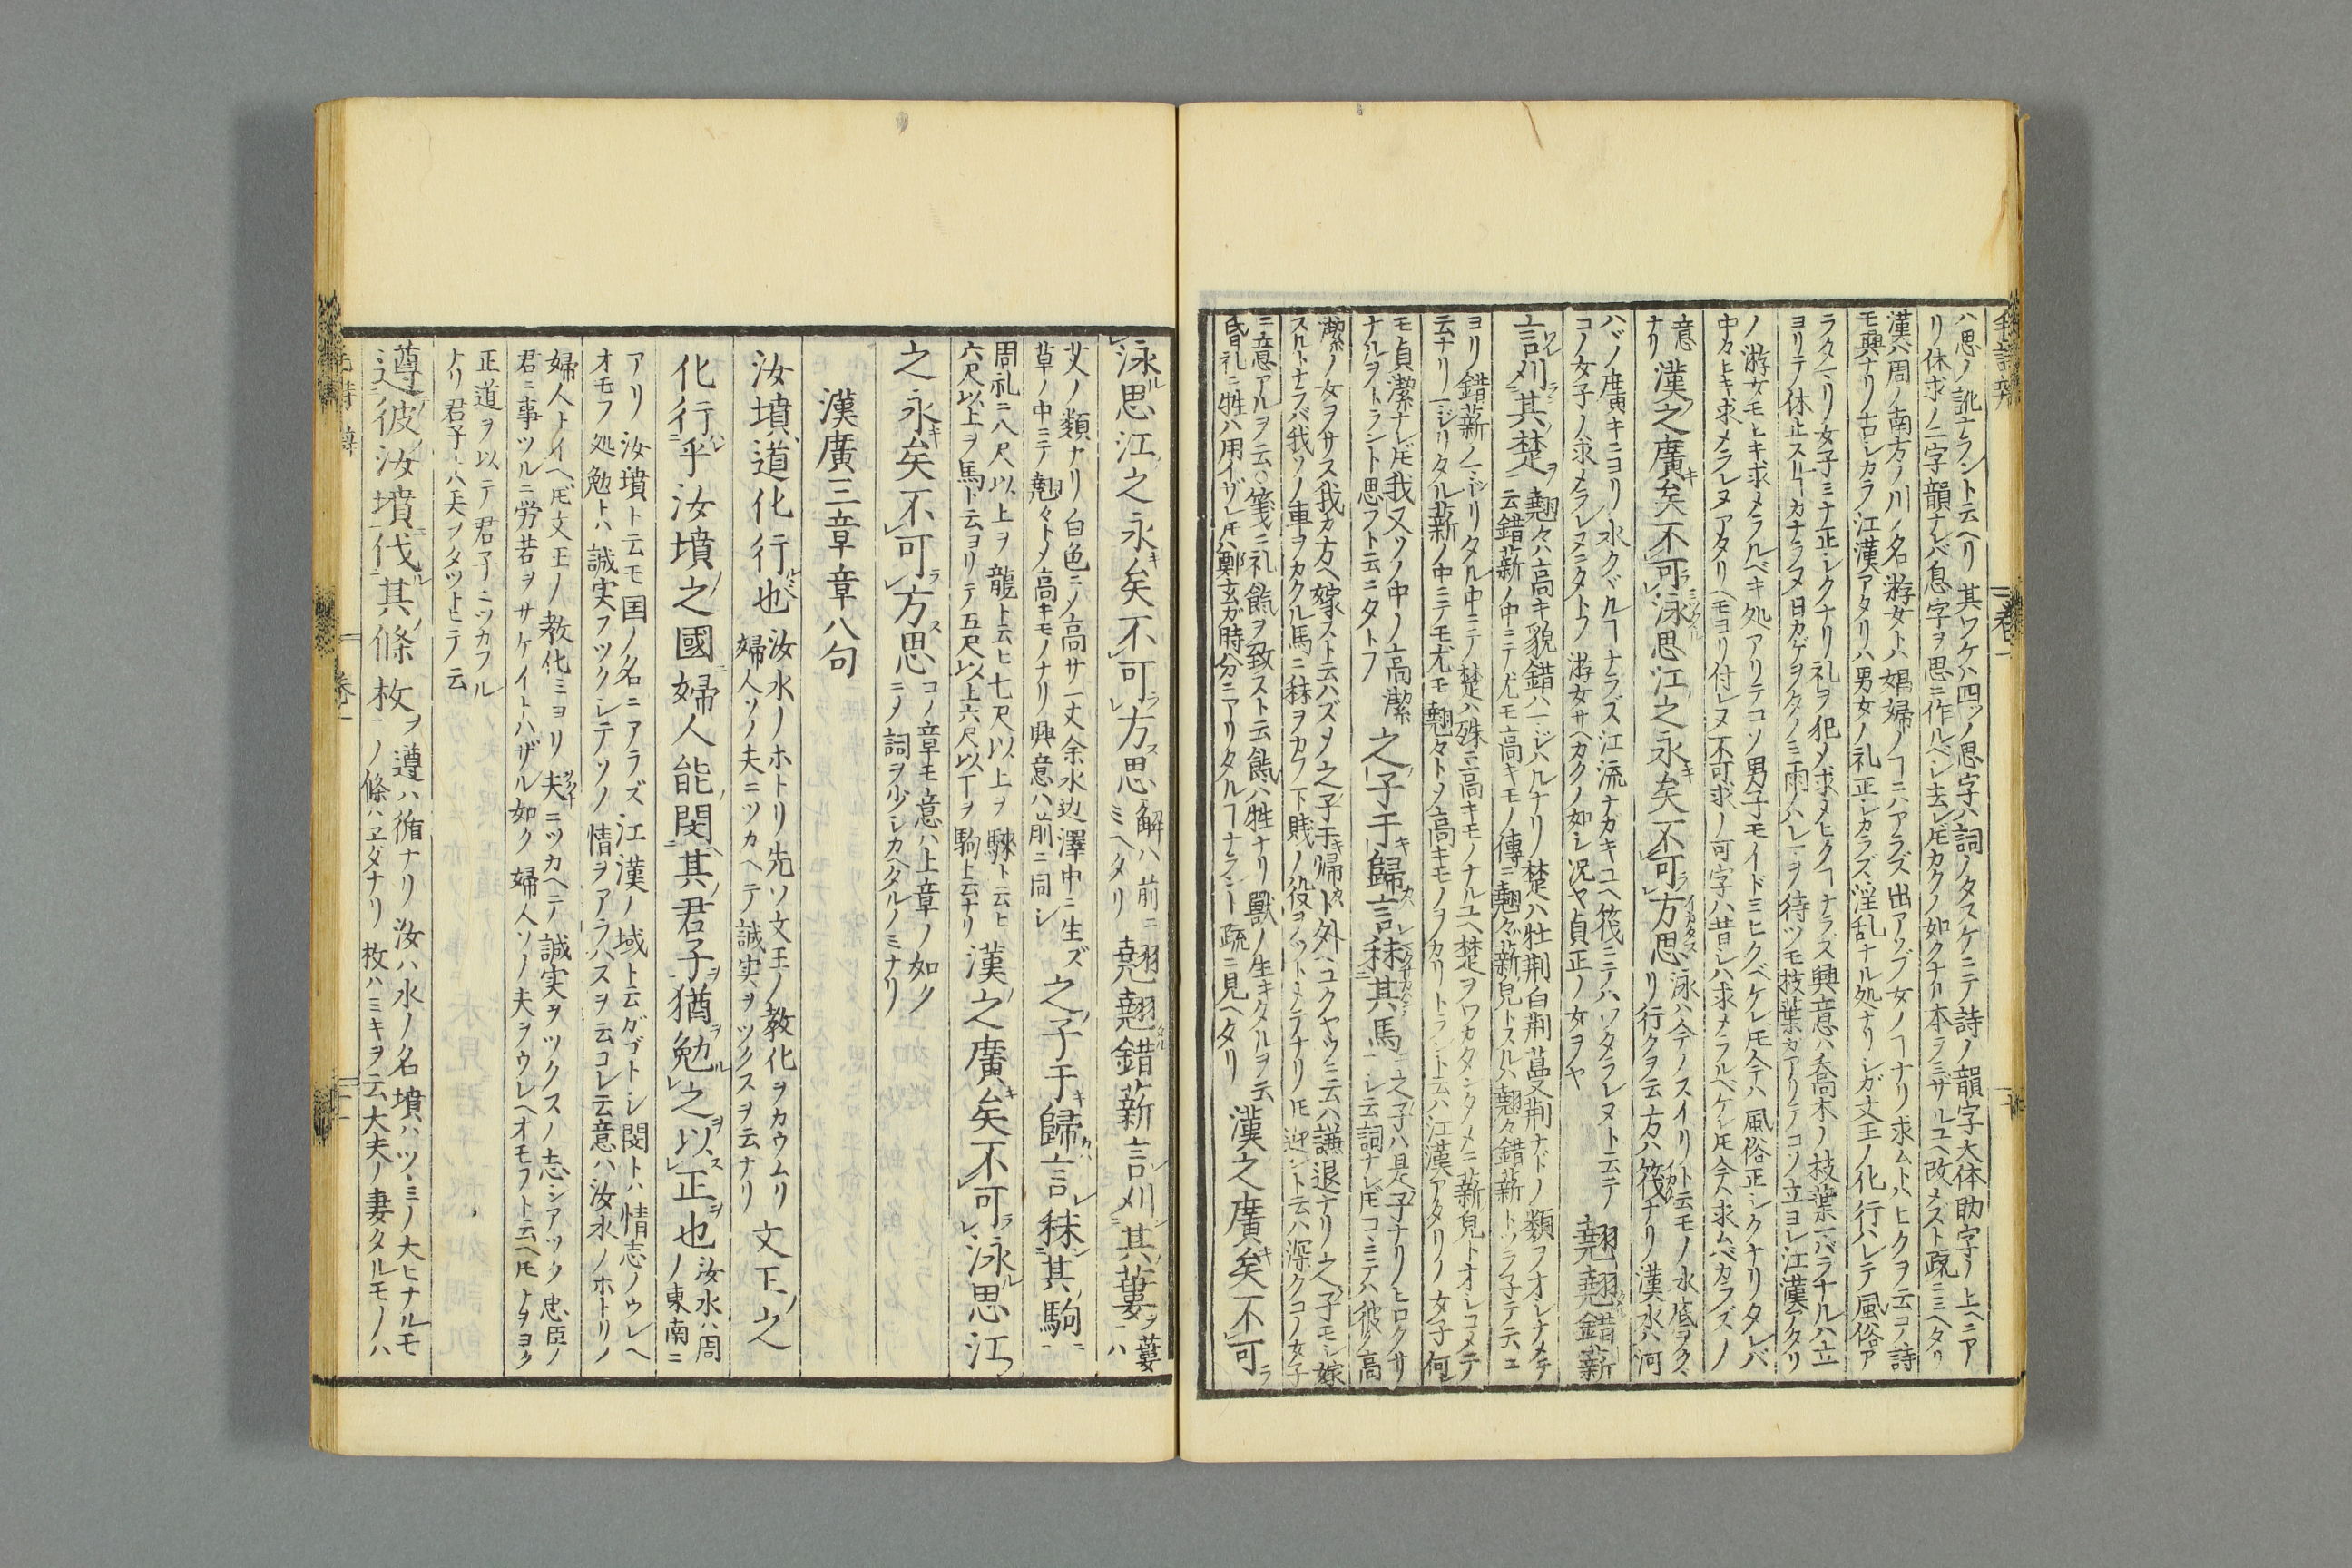 ハ思ノ訛ナラント云ヘリ 其ワケハ四ツノ思字ハ詞ノタスケニテ詩ノ韻字大体助字ノ上ヘニア
リ休求ノ二字韻ナレバ息字ヲ思ニ作ルベシ去レ𪜈カクノ如クナル本ヲミザルユヘ改メズト疏ニミヘタリ
漢ハ周ノ南方ノ川ノ名 游女トハ娼婦ノヿニハアラズ出アソブ女ノヿナリ 求ムトハヒクヲ云コノ詩
モ興ナリ 古シカラ江漢アタリハ男女ノ礼正シカラズ淫乱ナル処ナリシガ文王ノ化行ハレテ風俗ア
ラタマリ女子ミナ正シクナリ礼ヲ犯メ求メヒクヿナラズ興意ハ喬木ノ枝葉マバラナルハ立
ヨリテ休止スルヿカナラヌ日カゲヲタノミ雨ノハレマヲ待ツモ枝葉ガアリテコソ立ヨレ江漢アタリ
ノ游女モヒキ求メラルベキ処アリテコソ男子モイドミヒクベケレ𪜈今ハ風俗正シクナリタレバ
中々ヒキ求メラレヌアタリヘモヨリ付レヌ不可求ノ可字ハ昔シハ求メラルベケレ𪜈今ハ求ムベカラズノ
意ナリ 漢之廣矣不可泳思江之永矣不可方思 泳ハ今ノスイリト云モノ水底ヲクヾリ行クヲ云方ハ筏ナリ 漢水ハ河
ハヾノ廣キニヨリ水クヾルヿナラズ江流ナカキユヘ筏ニテハワタラレヌト云テ
コノ女子ノ求メラレヌニタトフ 游女サヘカクノ如シ况ヤ貞正ノ女ヲヤ 翹翹錯薪
言刈其楚 翹々ハ高キ貌錯ハマジハルナリ 楚ハ牡荆白荆蔓荆ナドノ類ヲオレナメテ云錯薪ノ中ニテ尤モ高キモノ傳ニ翹々薪兒トスルハ翹々錯薪トツラ子テ云ユ
ヨリ 錯薪ノマジリタル中ニテ楚ハ殊ニ高キモノナルユヘ楚ヲワカタンタメニ薪兒トオレコメテ
云ナリマジリタル薪ノ中ニテモ尤モ翹々トメ高キモノヲカリトラント云ハ江漢アタリノ女子何
モ貞潔ナレ𪜈我又ソノ中ノ高潔ナルヲトラント思フト云ニタトフ 之子于歸言秣其馬 之子ハ是子ナリノヒロクサシ云詞ナレ𪜈コヽニテハ彼ノ高
潔ノ女ヲサス我カ方ヘ嫁スト云ハズメ之子于帰ト外ヘユクヤウニ云ハ謙退ナリ 之子モシ嫁
スルトナラバ我ソノ車ヲカクル馬ニ秣ヲカフ下賎ノ役ヲツトメテナリ𪜈迎ント云ハ深クコノ女子
ニ意アルヲ云○箋ニ礼餼ヲ致スト云餼ハ牲ナリ 獸ノ生キタルヲ云
昏礼ニ牲ハ用イザレ𪜈鄭玄ガ時分ニアリタルヿナランー疏ニ見ヘタリ 漢之廣矣不可
泳思江之永矣不可方思 解ハ前ニミヘタリ 翹翹錯薪言刈其蔞 蔞ハ
艾ノ類ナリ白色ニノ高サ一丈余水辺澤中ニ生ズ
草ノ中ニテ翹々トメ高キモノナリ興意ハ前ニ同シ 之子于歸言秣其駒
周礼ニ八尺以上ヲ龍ト云ヒ七尺以上ヲ騋ト云ヒ
六尺以上ヲ馬ト云ヨリテ五尺以上六尺以下ヲ駒ト云ナリ 漢之廣矣不可泳思江
之永矣不可方思 コノ章モ意ハ上章ノ如クニノ詞ヲ少シカヘタルノミナリ
漢廣三章章八句
汝墳道化行也 汝水ノホトリ先ソ文王ノ教化ヲカウムリ婦人ソノ夫ニツカヘテ誠実ヲツクスヲ云ナリ 文王之
化行乎汝墳之國婦人能閔其君子猶勉之以正也 汝水ハ周ノ東南ニ
アリ 汝墳ト云モ国ノ名ニアラズ江漢ノ域ト云ガゴトシ閔トハ情志ノウレヘ
オモフ処勉トハ誠実ヲツクレテソノ情ヲアラハスヲ云コレ云意ハ汝水ノホトリノ
婦人トイヘ𪜈文王ノ教化ニヨリ夫ニツカヘテ誠実ヲツクスノ志シアツク忠臣ノ
君ニ事ツルニ労苦ヲサケイトハザル如ク婦人ソノ夫ヲウレヘオモフト云ヘ𪜈ヨヲヨク
正道ヲ以テ君子ニツカフル
ナリ君子トハ夫ヲタツトヒテ云
遵彼汝墳伐其條枚 遵ハ循ナリ汝ハ水ノ名墳ハツヽミノ大ヒナルモノ條ハヱダナリ 枚ハミキヲ云大夫ノ妻タルモノハ